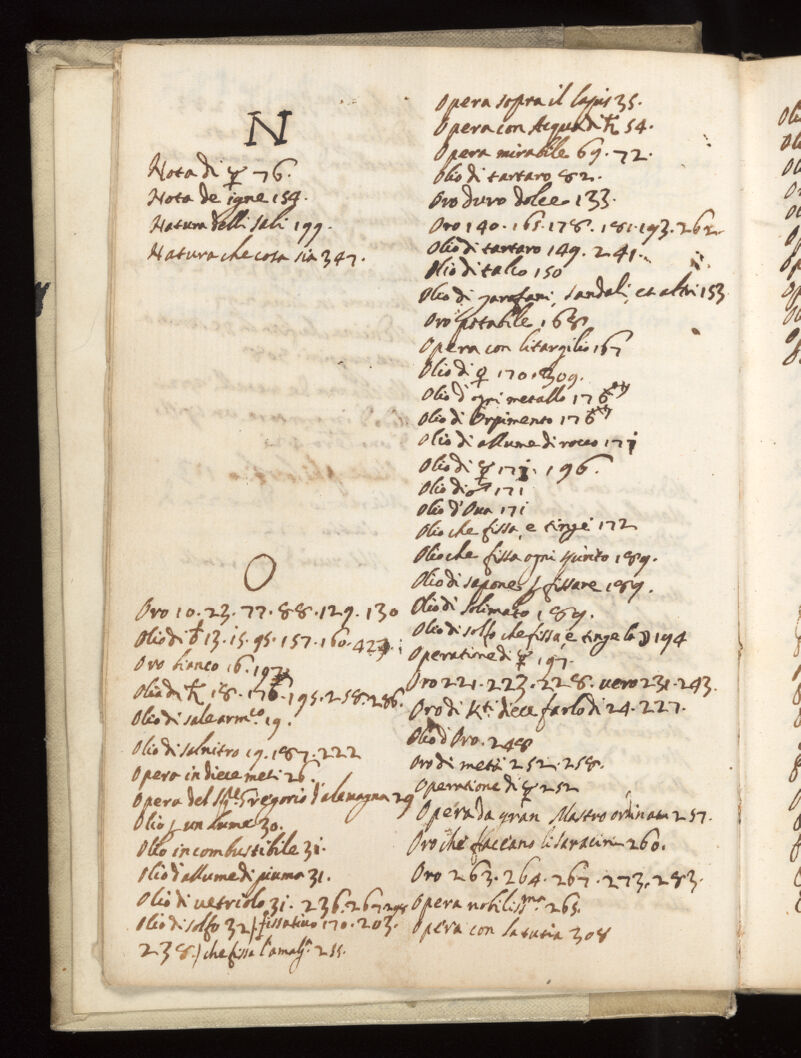 N
Nota di ☿ 76.
Nota de igne 154.
Natura delli sali 199.
Natura che cosa sia 347.
O
Oro 10. 23. 77. 88. 129. 130
Olio di ♄ 13. 15. 95. 157. 160. 423.
Oro bianco 16. 197
Olio di 18. 176. 195. 258. 286.
Olio di sale arm.co 19.
Olio di salnitro 19. 187. 222
Opera in diece mesi 26.
Opera del Gregorio d'alemagna 29
Olio un lume 30.
Olio incombustibile 31.
Olio d'allume di piuma 31.
Olio di vetriolo 31. 236. 267.
Olio di solfo 32 / fissativo 170. 203.
238. / che fissa l'amalg.a 255.
Opera sopra il lapis 35.
Opera con Acqua di 54.
Opera mirabile 69. 72.
Olio di tartaro 82.
Oro duro dolce 133.
Oro 140. 165. 178. 181. 193. 262
Olio di tartaro 149. 241.
Olio di talco 150
Olio di garofani, sandali, et altri 153
Oro potabile 168
Opera con litargilio 167
Olio di ♀ 170. 309.
Olio d'ogni metallo 176
Olio di Orpimento 176
Olio di allume di rocco 171
Olio di ☿ 171. 196.
Olio di ♂ 171
Olio d'Ova 171
Olio che fissa, e tinge 172
Olio che fissa ogni spirito 189.
Olio di sapone fissare 189.
Olio di solimato 189.
Olio di solfo che fissa, e tinge la ☽ 194
Operatione di ☿ 197.
Oro 221. 223. 228. vero 231. 243.
Oro di Kt. diece farlo di 24. 227.
Olio d'Oro. 248
Oro di metà 252. 258.
Operatione di ☿ 252
Opera da gran Mastro ordinata 257.
Oro che faceano li saracini 260.
Oro 263. 264. 267. 273. 283.
Opera nobiliss.ma 265.
Opera con la tutia 308